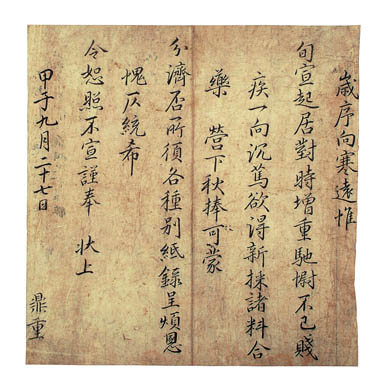 歲序向寒遠惟
旬宣起居對時增重馳㥜不已賤
疾一向沉篤欲得新採諸料合
藥 營下秋捧可蒙
分濟否所須各種別紙錄呈煩恩
愧仄統希
令恕照不宣謹奉 狀上
甲子九月二十七日
鼎重